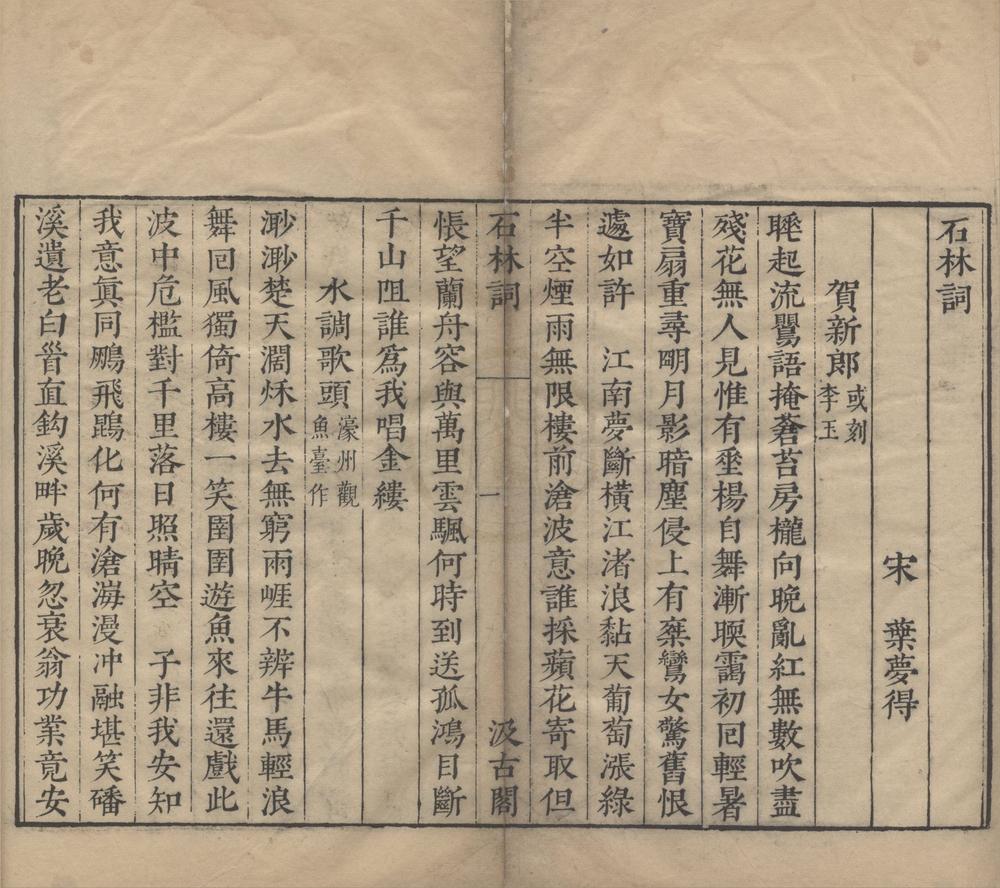 石林詞
宋　葉夢得
賀新郎 或刻李玉
睡起流鶯語掩蒼苔房櫳向晚亂紅無數吹盡
殘花無人見惟有垂楊自舞漸暖靄初回輕暑
寶扇重尋朙月影暗塵侵上有乘鸞女驚舊恨
遽如許　江南夢斷橫江渚浪黏天葡萄漲綠
半空煙雨無限樓前滄波意誰採蘋花寄取但
石林詞　一　汲古閣
悵望蘭舟容與萬里雲颿何時到送孤鴻目斷
千山阻誰爲我唱金縷
水調歌頭 濠州觀魚臺作
渺渺楚天濶秋水去無窮兩崕不辨牛馬輕浪
舞回風獨倚高樓一笑圉圉遊魚來往還戲此
波中危檻對千里落日照晴空　子非我安知
我意眞同鵬飛鵾化何有滄海漫冲融堪笑磻
溪遺老白首直鈎溪畔歲晚忽衰翁功業竟安